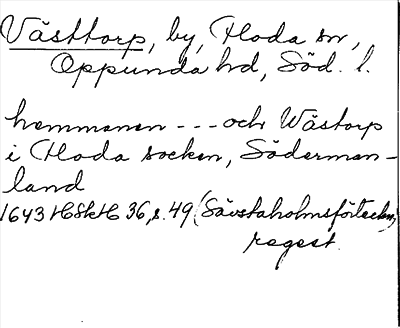 Västtorp, by, Floda sn,
Oppunda hd, Söd. l.
hemmanen --- och Wästorp
i Floda socken, Söderman-
land
1643 HSkH 36, s. 49 (Sävstaholmsförteckn)
regest.